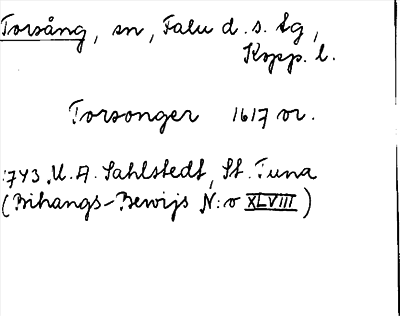 Torsång, sn, Falu d. s. tg,
Kopp. l.
Torsonger 1617 or.
1743 U. A. Sahlstedt, St. Tuna
(Bihangs-Bewijs N:o XLVIII)